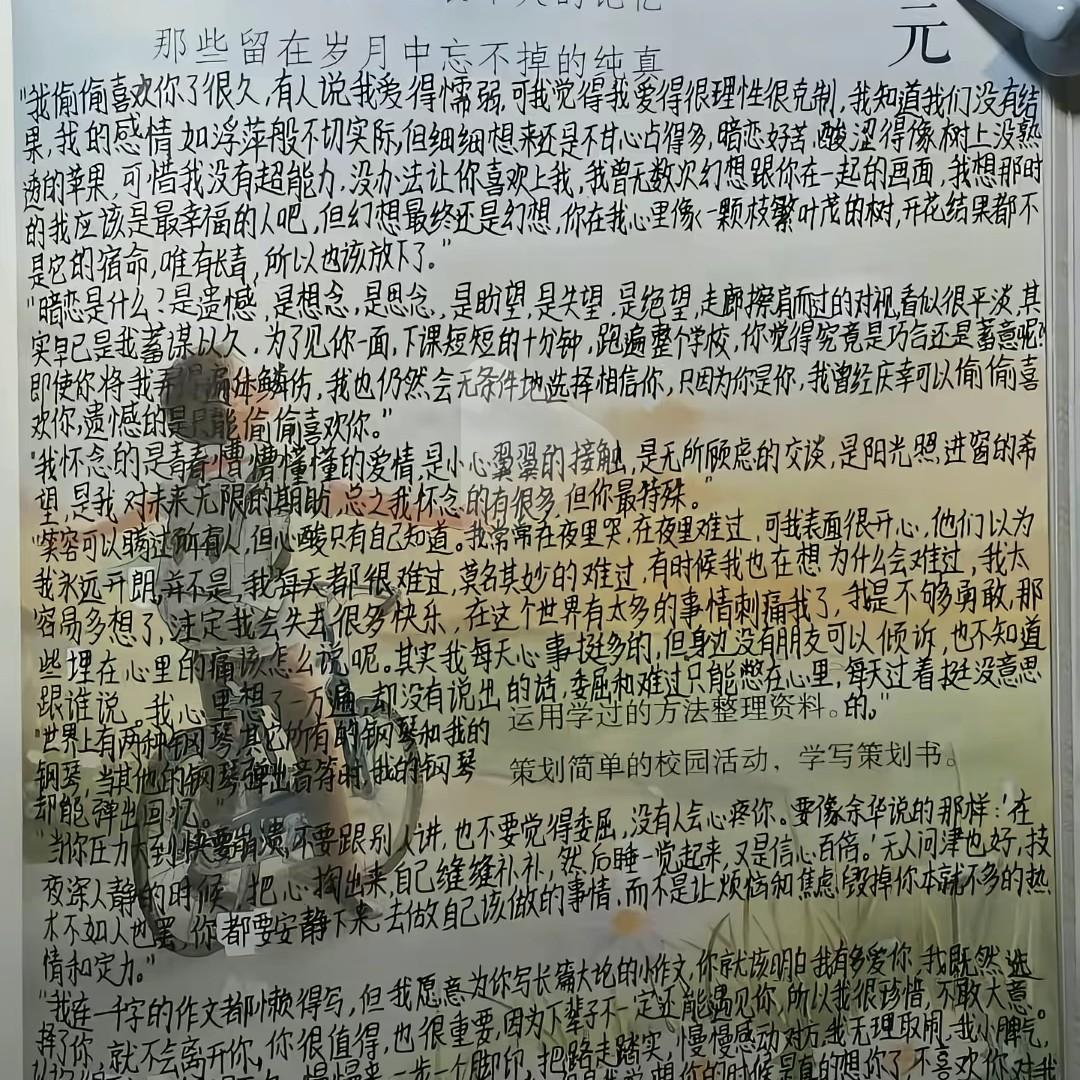 元
那些留在岁月中忘不掉的纯真
"我偷偷喜欢你了很久,有人说我爱得懦弱,可我觉得我爱得很理性很克制,我知道我们没有结
果,我的感情如浮萍般不切实际,但细细想来还是不甘心占得多,暗恋好苦,酸涩得像树上没熟
透的苹果,可惜我没有超能力,没办法让你喜欢上我,我曾无数次幻想跟你在一起的画面,我想那时
的我应该是最幸福的人吧,但幻想最终还是幻想,你在我心里像一颗枝繁叶茂的树,开花结果都不
是它的宿命,唯有长青,所以也该放下了。"
"暗恋是什么?是遗憾,是想念,是思念,是盼望,是失望,是绝望,走廊擦肩而过的对视,看似很平淡,其
实早已是我蓄谋以久,为了见你一面,下课短短的十分钟,跑遍整个学校,你觉得究竟是巧合还是蓄意呢?
即使你将我弄得遍体鳞伤,我也仍然会无条件地选择相信你,只因为你是你,我曾经庆幸可以偷偷喜
欢你,遗憾的是只能偷偷喜欢你。"
"我怀念的是青春懵懵懂懂的爱情,是小心翼翼的接触,是无所顾虑的交谈,是阳光照进窗的希
望,是我对未来无限的期盼,总之我怀念的有很多,但你最特殊。"
"笑容可以瞒过所有人,但心酸只有自己知道。我常常在夜里哭,在夜里难过,可我表面很开心,他们以为
我永远开朗,并不是,我每天都很难过,莫名其妙的难过,有时候我也在想为什么会难过,我太
容易多想了,注定我会失去很多快乐,在这个世界有太多的事情刺痛我了,我是不够勇敢,那
些埋在心里的痛该怎么说呢。其实我每天心事挺多的,但身边没有朋友可以倾诉,也不知道
跟谁说。我心里想了一万遍,却没有说出的话,委屈和难过只能憋在心里,每天过着挺没意思
的。"
运用学过的方法整理资料。
"世界上有两种钢琴,其它所有的钢琴和我的
钢琴,当其他的钢琴弹出音符时,我的钢琴
却能弹出回忆。"
策划简单的校园活动,学写策划书。
"当你压力大到快要崩溃,不要跟别人讲,也不要觉得委屈,没有人会心疼你。要像余华说的那样:'在
夜深人静的时候,把心掏出来,自己缝缝补补,然后睡一觉起来,又是信心百倍。'无人问津也好,技
术不如人也罢,你都要安静下来,去做自己该做的事情,而不是让烦恼和焦虑毁掉你本就不多的热
情和定力。"
"我连一千字的作文都懒得写,但我愿意为你写长篇大论的小作文,你就该明白我有多爱你,我既然选
择了你,就不会离开你,你很值得,也很重要,因为下辈子不一定还能遇见你,所以我很珍惜,不敢大意。
慢慢来,一步一个脚印,把路走踏实,慢慢感动对方,我无理取闹,我小脾气,